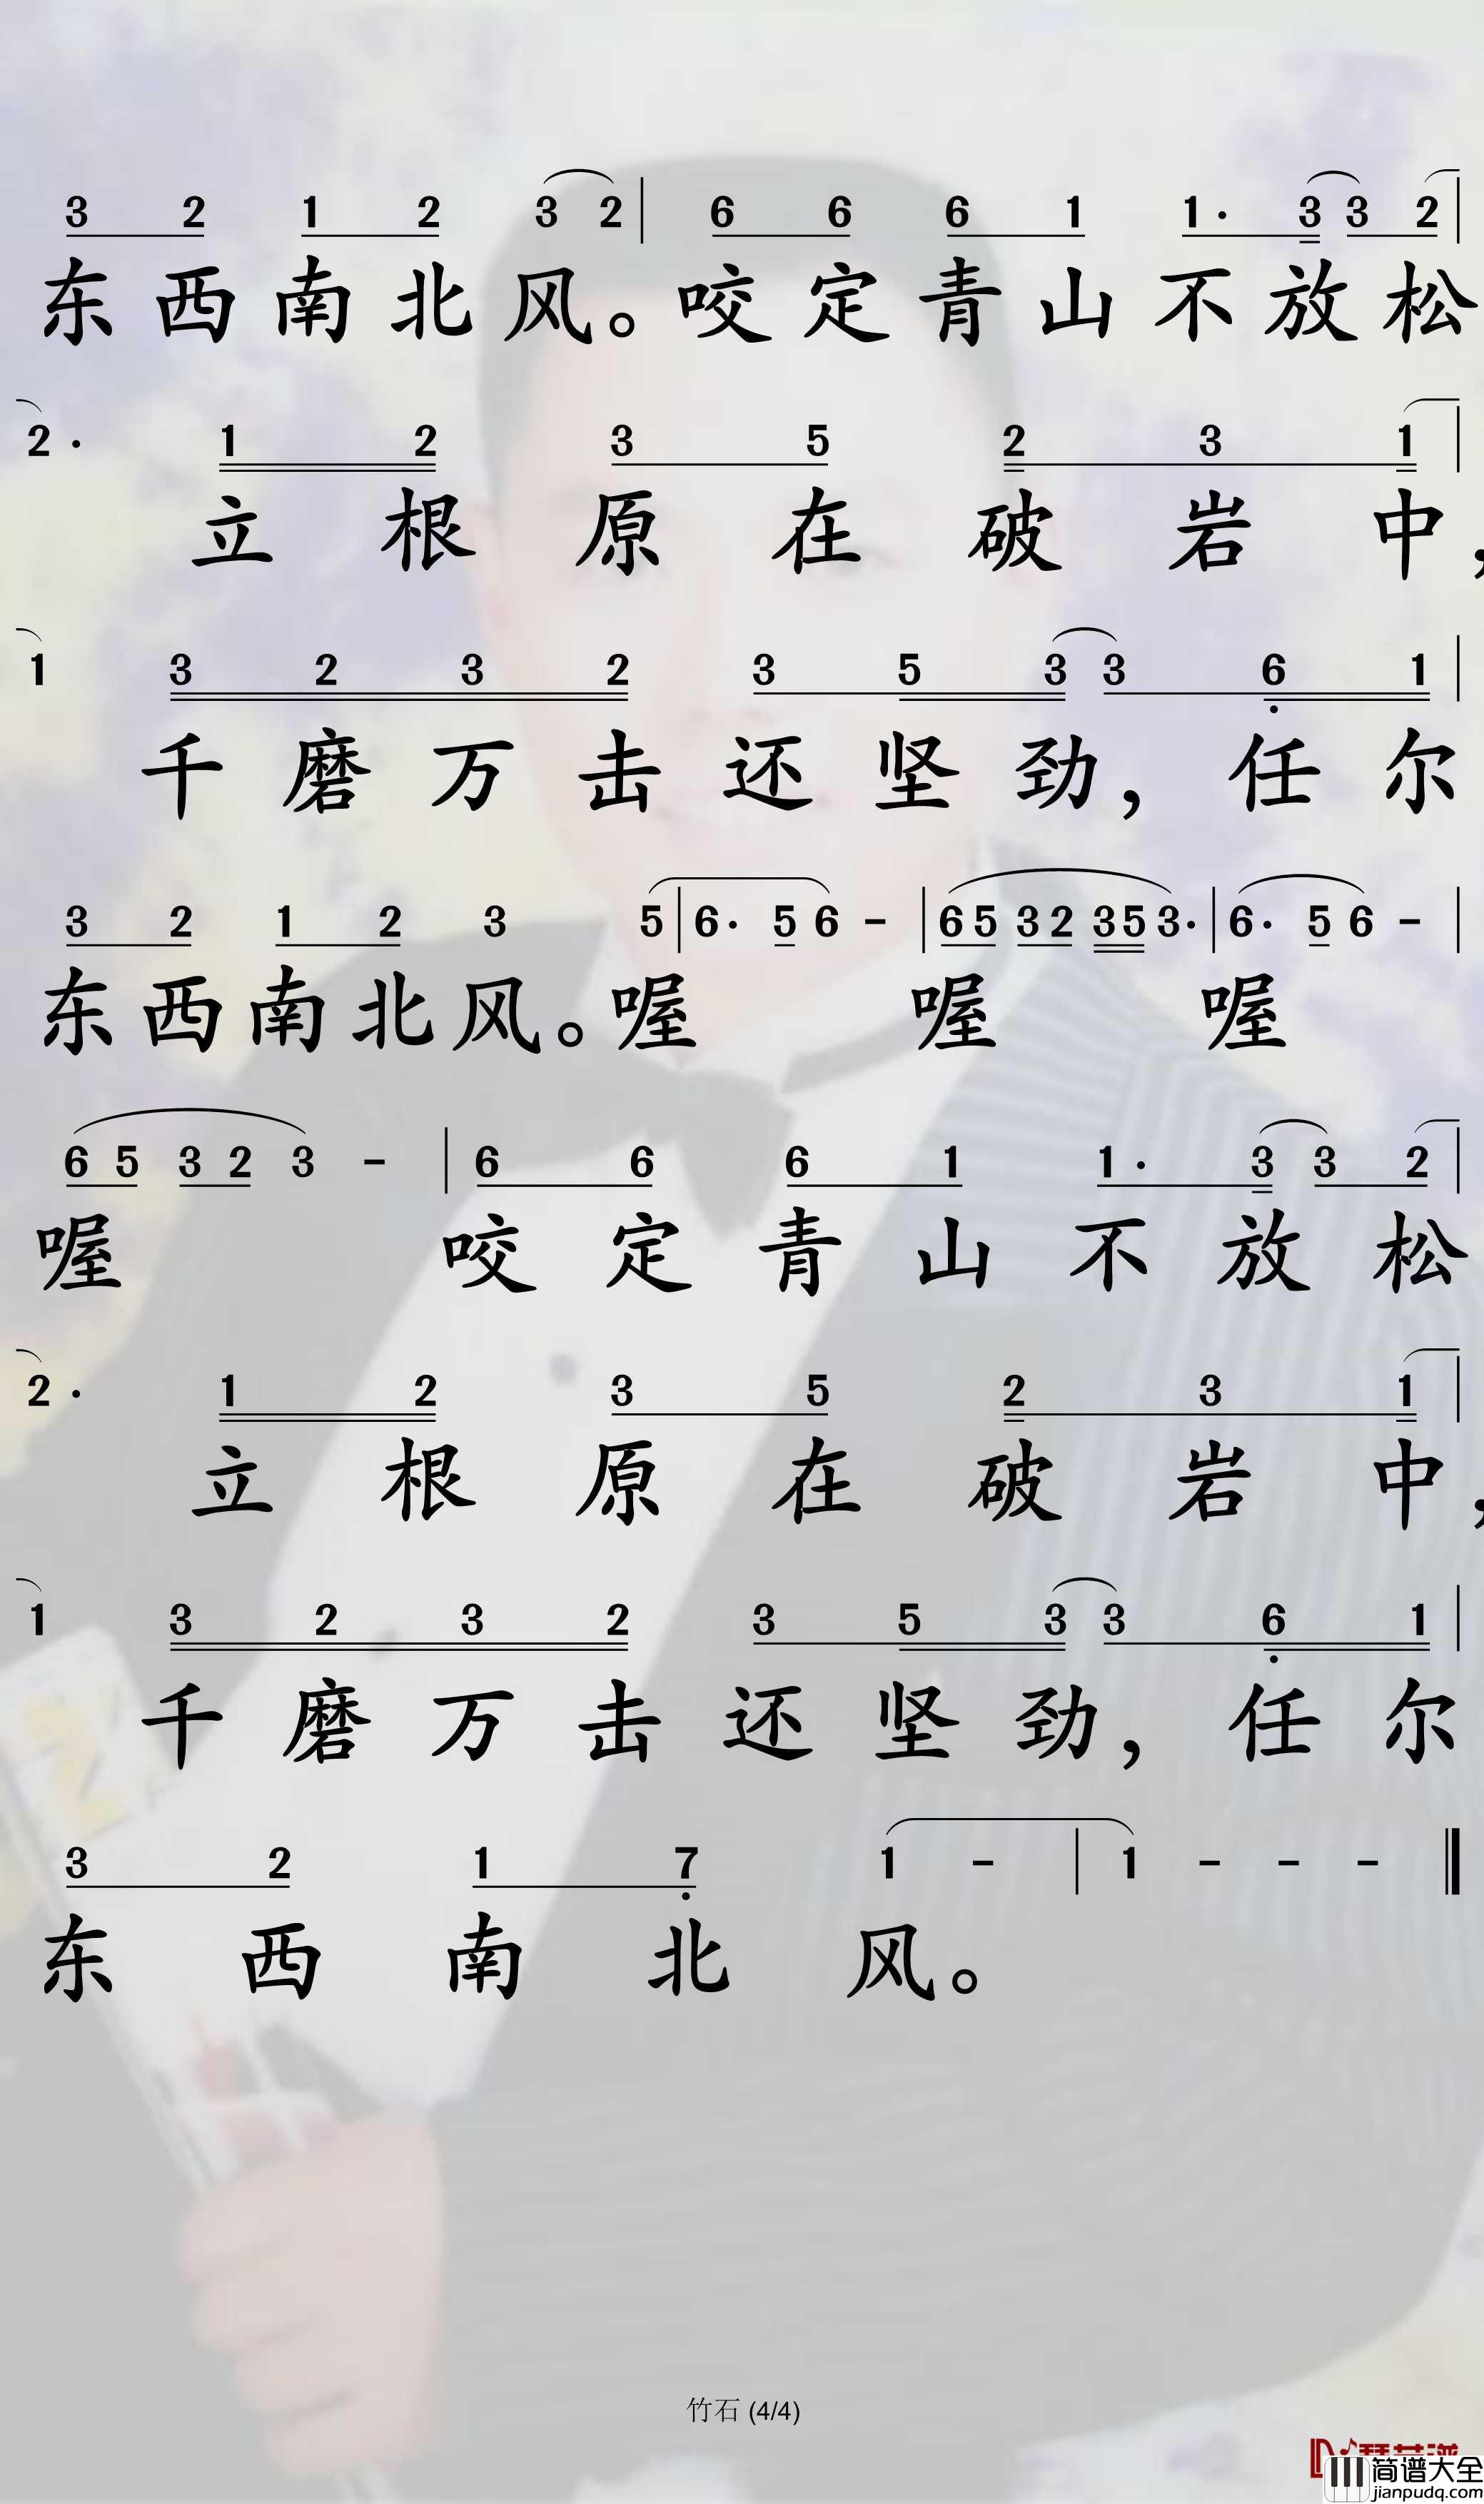 3 2 1 2 3 2 | 6 6 6 1 1· 3 3 2 |
东西南北风。咬定青山不放松
2· 1 2 3 5 2 3 1 |
立根原在破岩中，
1 3 2 3 2 3 5 3 3 6̣ 1 |
千磨万击还坚劲，任尔
3 2 1 2 3 5 | 6· 5 6 - | 6 5 3 2 3 5 3· | 6· 5 6 - |
东西南北风。喔 喔 喔
6 5 3 2 3 - | 6 6 6 1 1· 3 3 2 |
喔 咬定青山不放松
2· 1 2 3 5 2 3 1 |
立根原在破岩中，
1 3 2 3 2 3 5 3 3 6̣ 1 |
千磨万击还坚劲，任尔
3 2 1 7̣ 1 - | 1 - - - ‖
东西南北风。
竹石 (4/4)
简谱大全
jianpudq.com